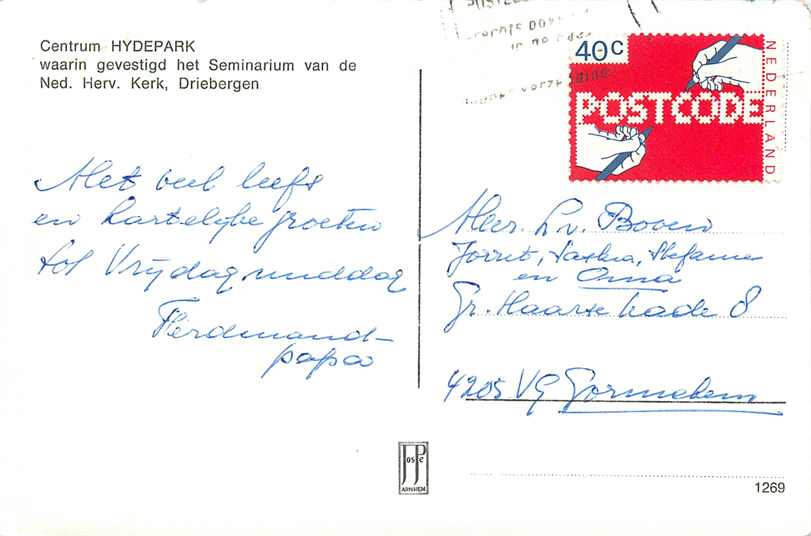 Centrum HYDEPARK
waarin gevestigd het Seminarium van de
Ned. Herv. Kerk, Driebergen
Met veel liefs
en hartelijke groeten
tot Vrijdagmiddag
Ferdinand-
papa
40c
POSTCODE
NEDERLAND
Mevr. L. v. Boven
Jorrit, Saskia, Stefanie
en Oma
Gr. Haarse kade 8
4205 VG Gorinchem
JosPe
ARNHEM
1269